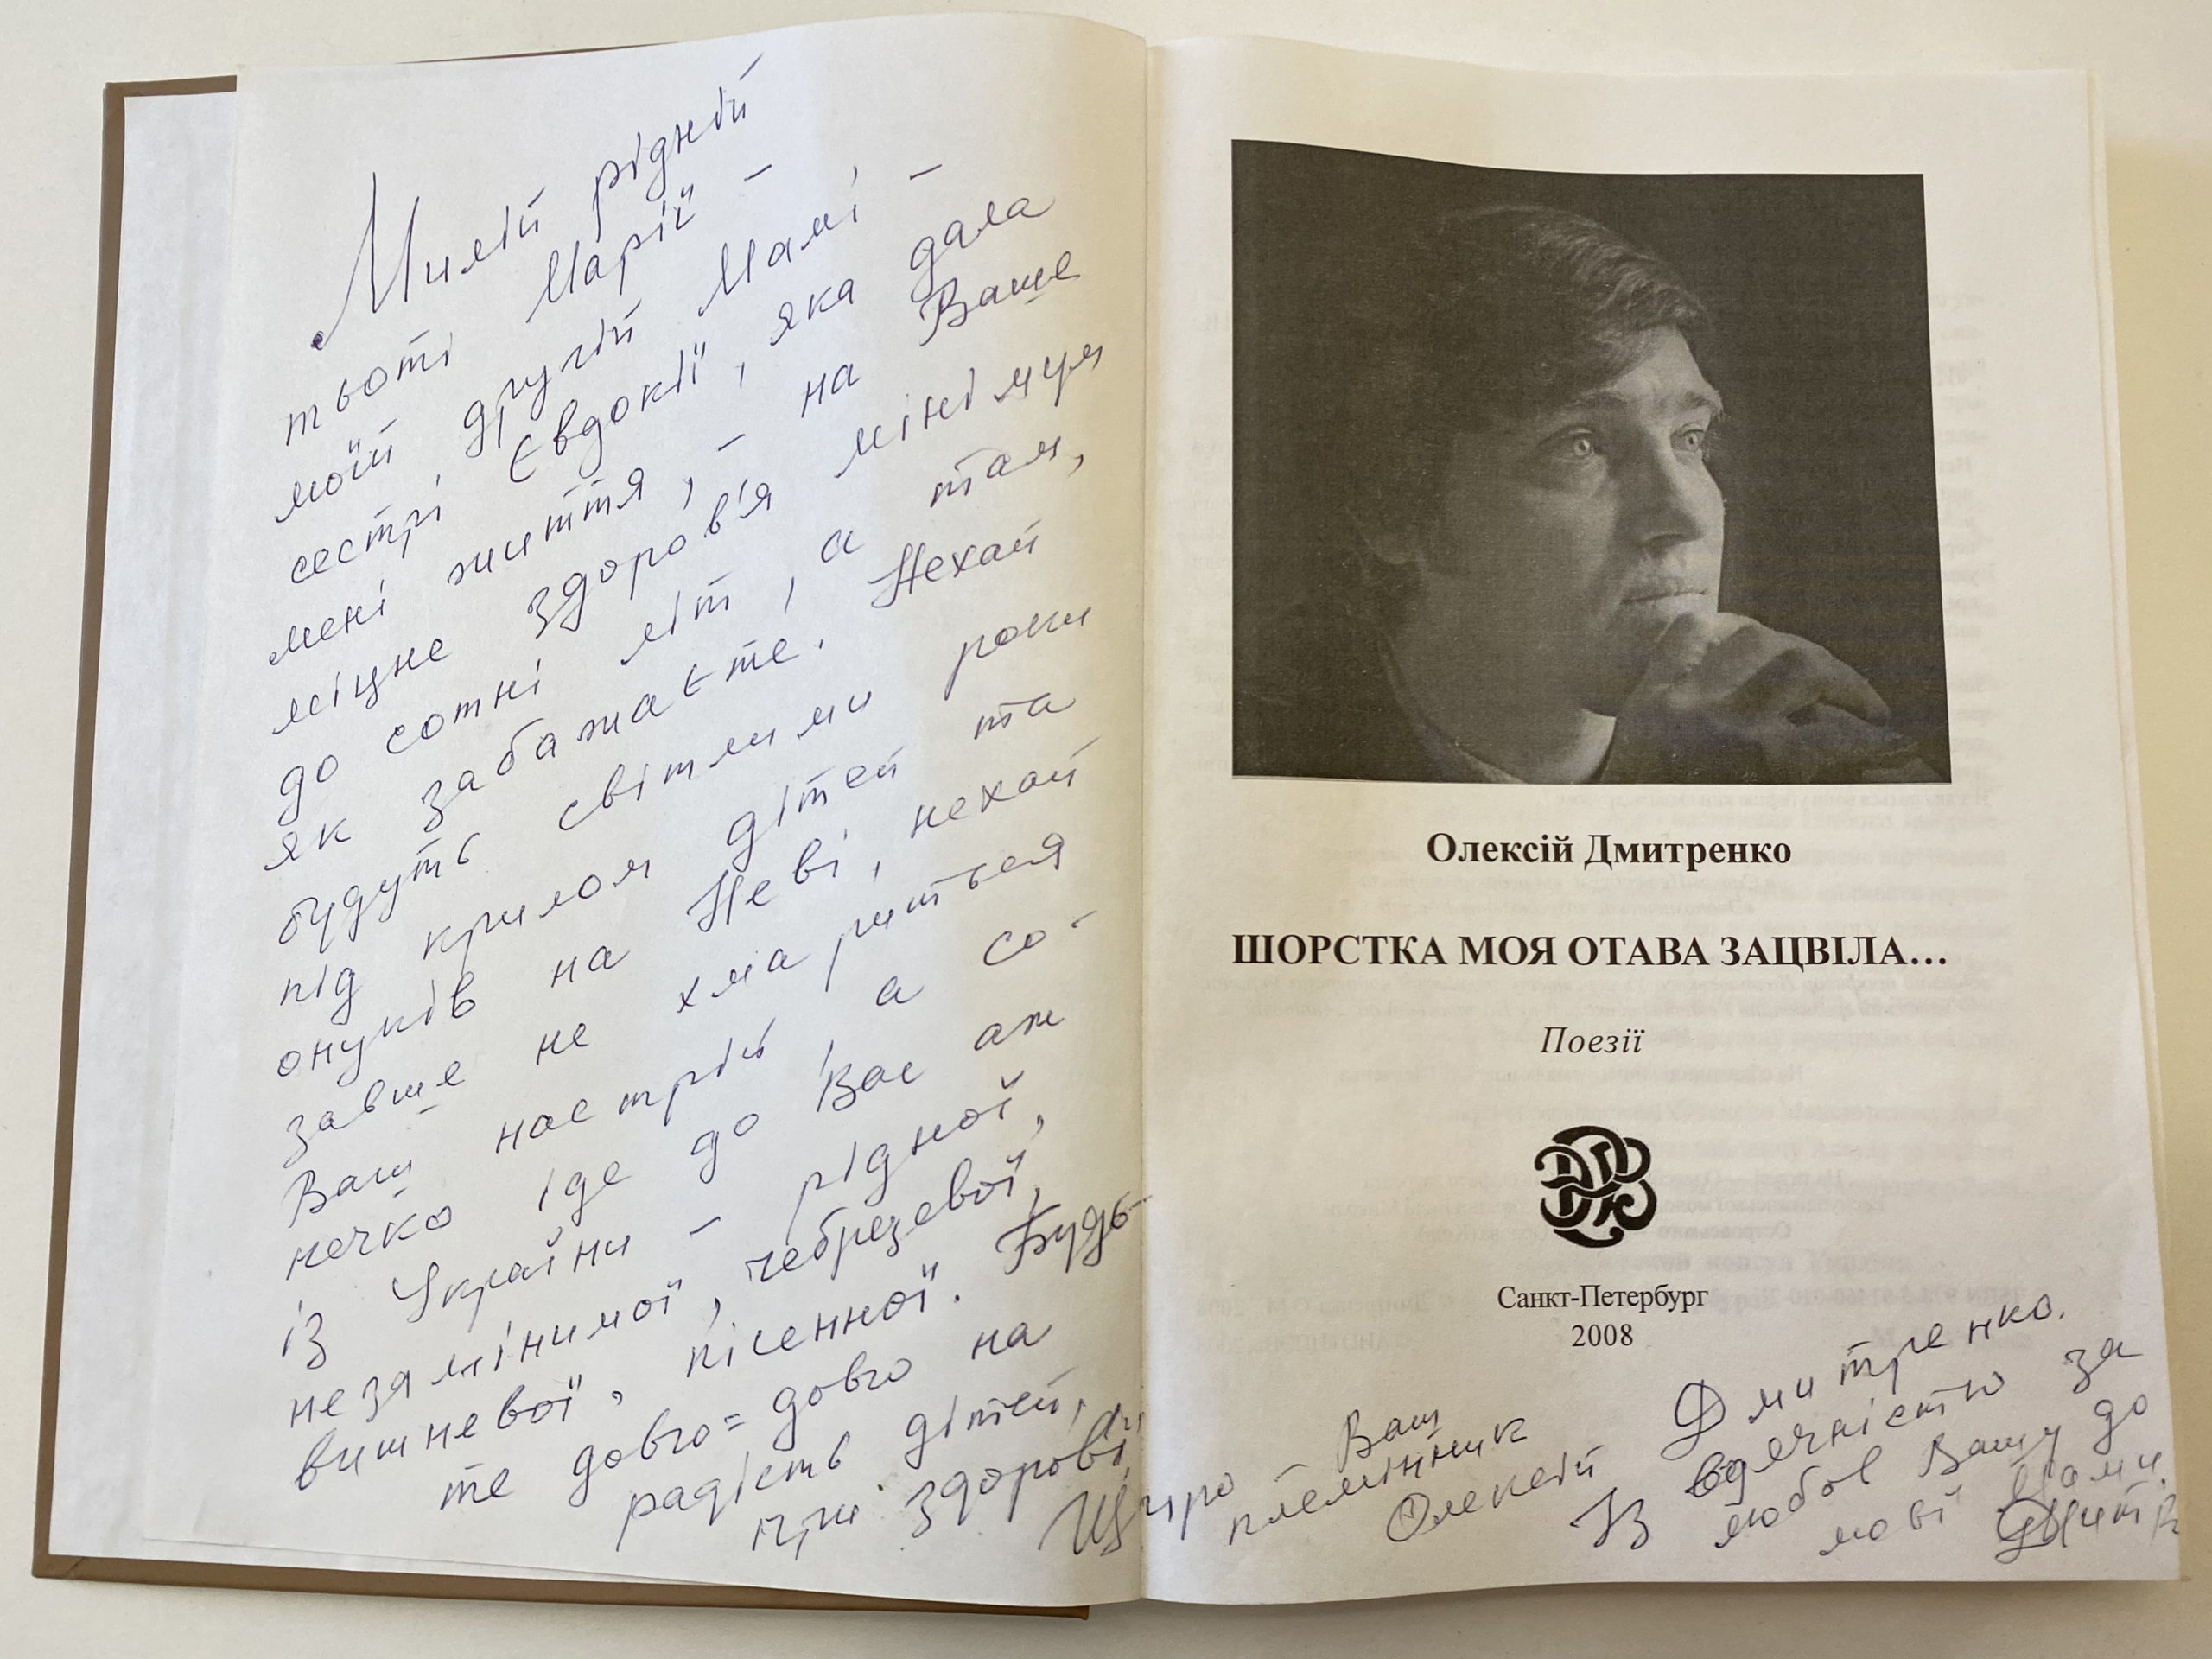 Милій рідній
тьоті Марії –
моїй другій Мамі –
сестрі Євдокії, яка дала
мені життя, – на Ваше
міцне здоров'я мінімум
до сотні літ, а там,
як забажаєте. Нехай
будуть світлими роки
під крилом дітей та
онуків на Неві, нехай
завше не хмариться
Ваш настрій, а со-
нечко іде до Вас аж
із України – рідної,
незамінимої, чебрецевої,
вишневої, пісенної. Будь-
те довго-довго на
радість дітей,
при здоров'ї,
Щиро Ваш
племінник
Олексій Дмитренко.
Із вдячністю за
любов Вашу до
моєї Мами.
Олексій Дмитренко
ШОРСТКА МОЯ ОТАВА ЗАЦВІЛА…
Поезії
Санкт-Петербург
2008